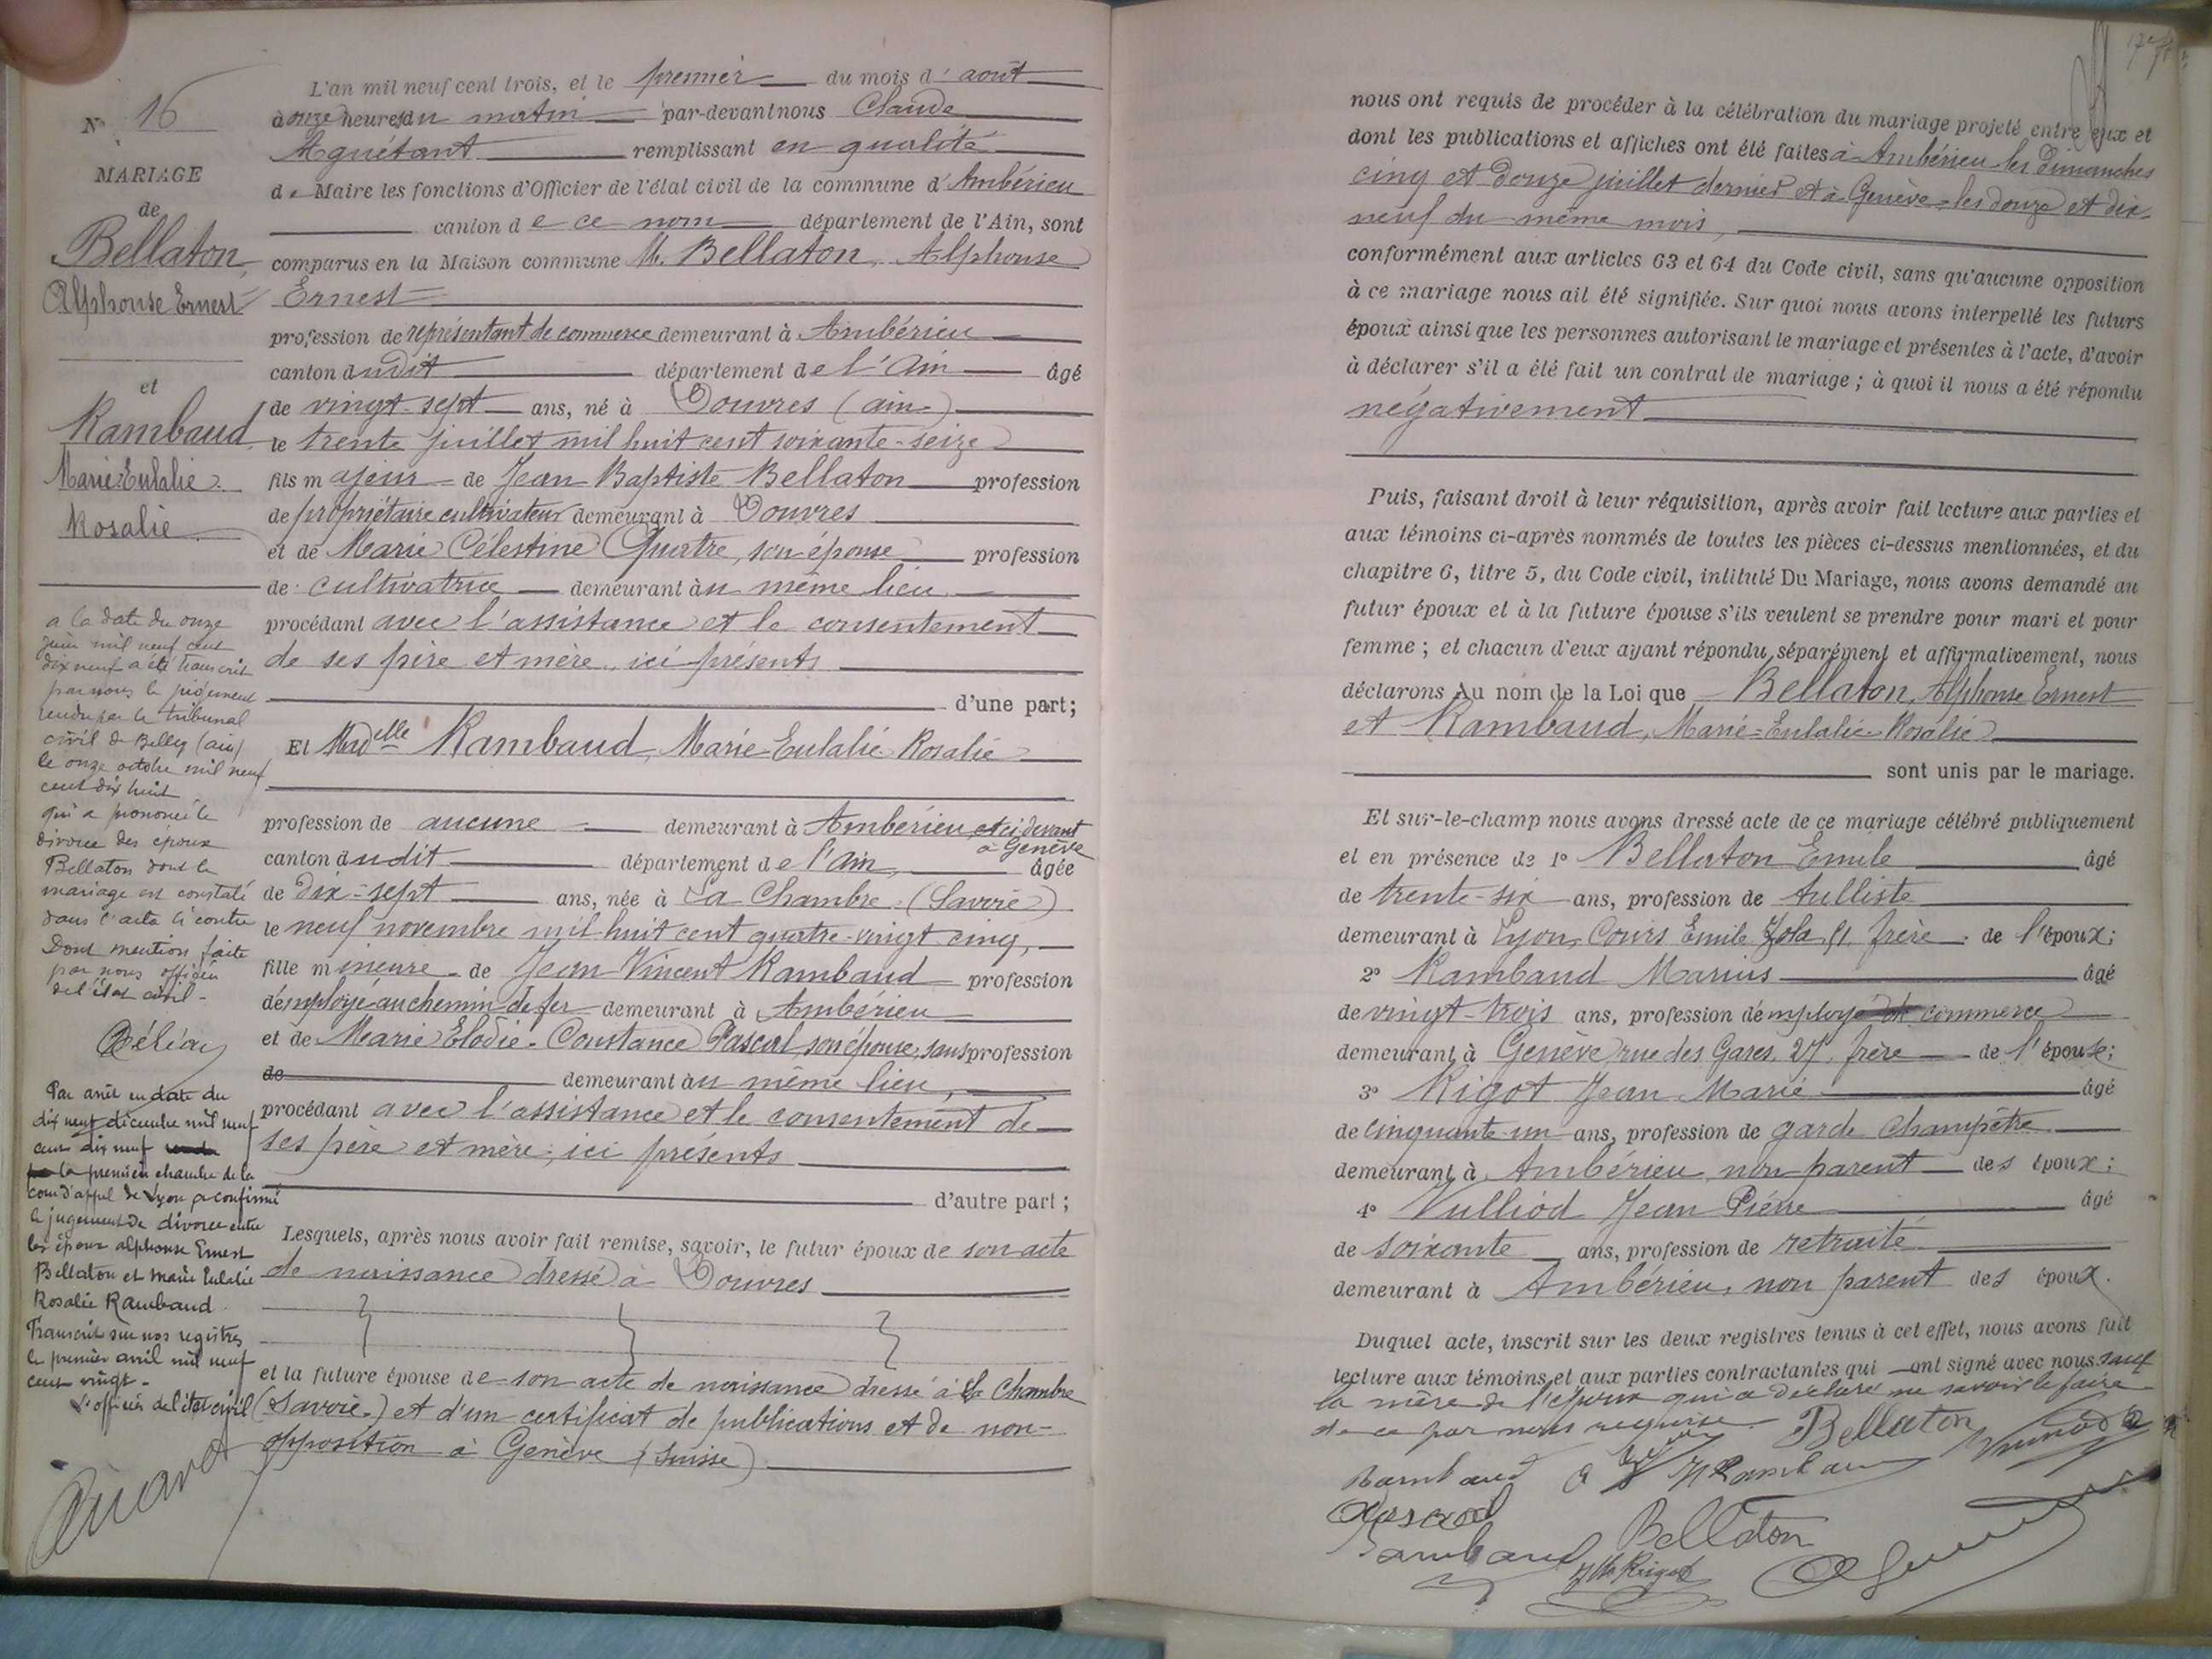 N° 16
MARIAGE
de
Bellaton,
Alphonse Ernest
et
Rambaud,
Marie-Eulalie
Rosalie
a la date du onze
juin mil neuf cent
dix neuf a été transcrit
par nous le jugement
rendu par le tribunal
civil de Belley (ain)
le onze octobre mil neuf
cent dix huit
qui a prononcé le
divorce des époux
Bellaton dont le
mariage est constaté
dans l'acte ci contre
Dont mention faite
par nous officier
de l'état civil -
Par arrêt en date du
dix neuf décembre mil neuf
cent dix neuf
la première chambre de la
cour d'appel de Lyon a confirmé
le jugement de divorce entre
les époux alphonse Ernest
Bellaton et Marie Eulalie
Rosalie Rambaud.
Transcrit sur nos registres
le premier avril mil neuf
cent vingt -
L'officier de l'état civil
L'an mil neuf cent trois, et le premier du mois d'août
à onze heures du matin par-devant nous Claude
Aguétant remplissant en qualité
de Maire les fonctions d'Officier de l'état civil de la commune d'Ambérieu
canton de ce nom département de l'Ain, sont
comparus en la Maison commune M. Bellaton, Alphonse
Ernest
profession de représentant de commerce demeurant à Ambérieu
canton dudit département de l'Ain âgé
de vingt-sept ans, né à Douvres (ain)
le trente juillet mil huit cent soixante-seize
fils majeur de Jean Baptiste Bellaton profession
de propriétaire cultivateur demeurant à Douvres
et de Marie Célestine Quatre, son épouse profession
de cultivatrice demeurant au même lieu
procédant avec l'assistance et le consentement
de ses père et mère, ici présents
d'une part;
Et Mad^elle Rambaud, Marie-Eulalie Rosalie
profession de aucune demeurant à Ambérieu, et ci devant
à Genève
canton dudit département de l'Ain, âgée
de dix-sept ans, née à La Chambre (Savoie)
le neuf novembre mil huit cent quatre-vingt cinq,
fille mineure de Jean Vincent Rambaud profession
d'employé au chemin de fer demeurant à Ambérieu
et de Marie Elodie-Constance Pascal, son épouse, sans profession
de demeurant au même lieu,
procédant avec l'assistance et le consentement de
ses père et mère, ici présents
d'autre part;
Lesquels, après nous avoir fait remise, savoir, le futur époux de son acte
de naissance dressé à Douvres
et la future épouse de son acte de naissance dressé à La Chambre
(Savoie) et d'un certificat de publications et de non-
opposition à Genève (Suisse)
nous ont requis de procéder à la célébration du mariage projeté entre eux et
dont les publications et affiches ont été faites à Ambérieu les Dimanches
cinq et Douze juillet dernier et à Genève les douze et dix-
neuf du même mois,
conformément aux articles 63 et 64 du Code civil, sans qu'aucune opposition
à ce mariage nous ait été signifiée. Sur quoi nous avons interpellé les futurs
époux ainsi que les personnes autorisant le mariage et présentes à l'acte, d'avoir
à déclarer s'il a été fait un contrat de mariage; à quoi il nous a été répondu
négativement
Puis, faisant droit à leur réquisition, après avoir fait lecture aux parties et
aux témoins ci-après nommés de toutes les pièces ci-dessus mentionnées, et du
chapitre 6, titre 5, du Code civil, intitulé Du Mariage, nous avons demandé au
futur époux et à la future épouse s'ils veulent se prendre pour mari et pour
femme; et chacun d'eux ayant répondu séparément et affirmativement, nous
déclarons Au nom de la Loi que Bellaton, Alphonse Ernest
et Rambaud, Marie-Eulalie-Rosalie
sont unis par le mariage.
Et sur-le-champ nous avons dressé acte de ce mariage célébré publiquement
et en présence de 1° Bellaton Emile âgé
de trente-six ans, profession de tulliste
demeurant à Lyon, Cours Emile Zola 51, frère de l'époux;
2° Rambaud Marius âgé
de vingt-trois ans, profession d'employé de commerce
demeurant à Genève rue des Gares, 27, frère de l'épouse;
3° Rigot Jean Marie âgé
de cinquante-un ans, profession de garde champêtre
demeurant à Ambérieu non parent des époux;
4° Vulliod Jean Pierre âgé
de soixante ans, profession de retraité
demeurant à Ambérieu, non parent des époux.
Duquel acte, inscrit sur les deux registres tenus à cet effet, nous avons fait
lecture aux témoins et aux parties contractantes qui ont signé avec nous sauf
la mère de l'époux qui a déclaré ne savoir le faire
de ce par nous requise.
Bellaton
Rambaud
Pascal
Rambaud
Bellaton
J M Rigot